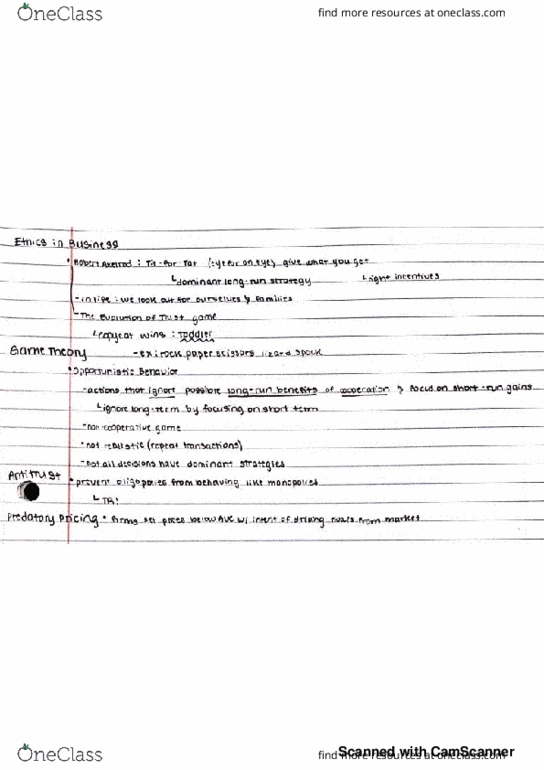 OneClass
find more resources at oneclass.com
Ethics in Business
• Robert Axelrod : Tit-for-Tat (eye for an eye) give what you get
↳ dominant long-run strategy ↳ right incentives
- in life : we look out for ourselves & families
- The Evolution of Trust game
↳ copycat wins :
Game Theory - ex: rock paper scissors lizard spock
• Opportunistic Behavior
- actions that ignore possible long-run benefits of cooperation & focus on short-run gains
↳ ignore long-term by focusing on short term
- non cooperative game
• not realistic (repeat transactions)
- not all decisions have dominant strategies
Antitrust • prevent oligopolies from behaving like monopolies
↳ TR:
Predatory Pricing • firms set prices below AVC w/ intent of driving rivals from market
OneClass
find more resources at oneclass.com
Scanned with CamScanner